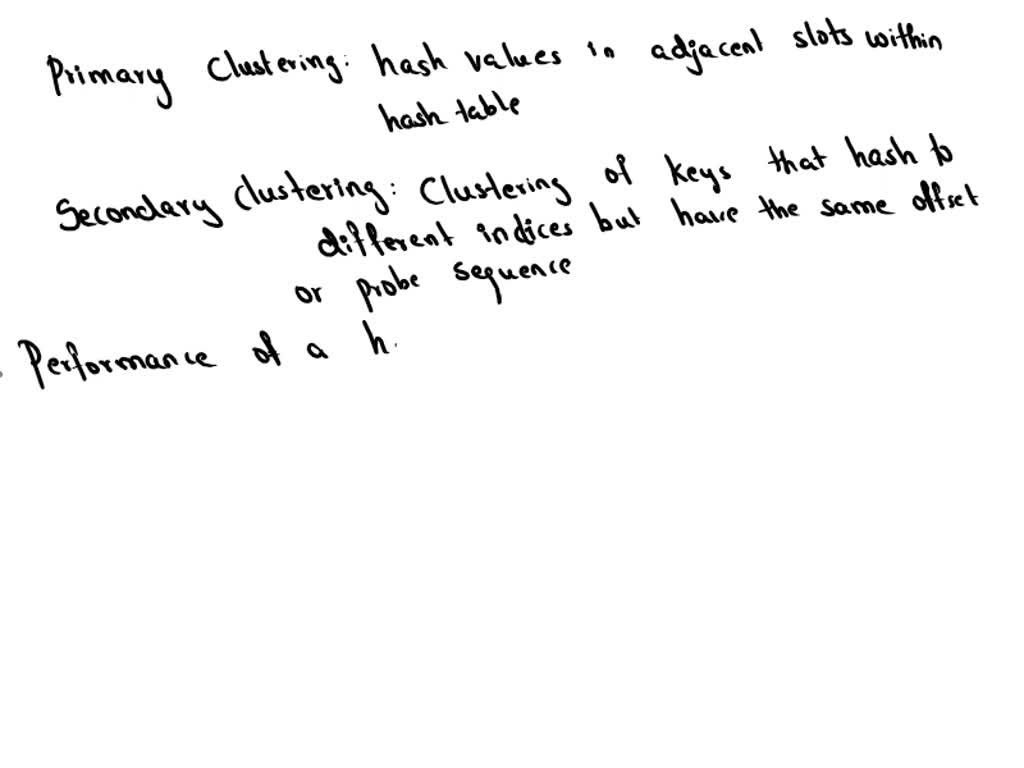 Primary Clustering: hash values in adjacent slots within
hash table
Secondary clustering: Clustering of keys that hash to
different indices but have the same offset
or probe sequence
Performance of a h